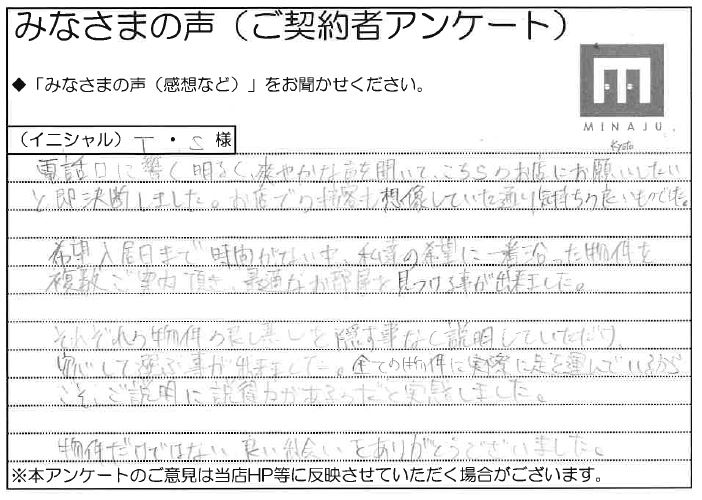 みなさまの声（ご契約者アンケート）
◆「みなさまの声（感想など）」をお聞かせください。
MINAJU.
Kyoto
（イニシャル） T・S 様
電話口に響く明るく、爽やかな声を聞いて、こちらのお店にお願いしたい
と即決断しました。お店での接客も想像していた通り気持ちの良いものでした。
希望入居日まで時間がない中、私達の希望に一番沿った物件を
複数ご案内頂き、最適なお部屋を見つける事が出来ました。
それぞれの物件の良し悪しを隠す事なく説明していただけ、
安心して選ぶ事が出来ました。全ての物件に実際に足を運んでいるから
こそ、ご説明に説得力があるのだと実感しました。
物件だけではない良い出会いをありがとうございました。
※本アンケートのご意見は当店HP等に反映させていただく場合がございます。